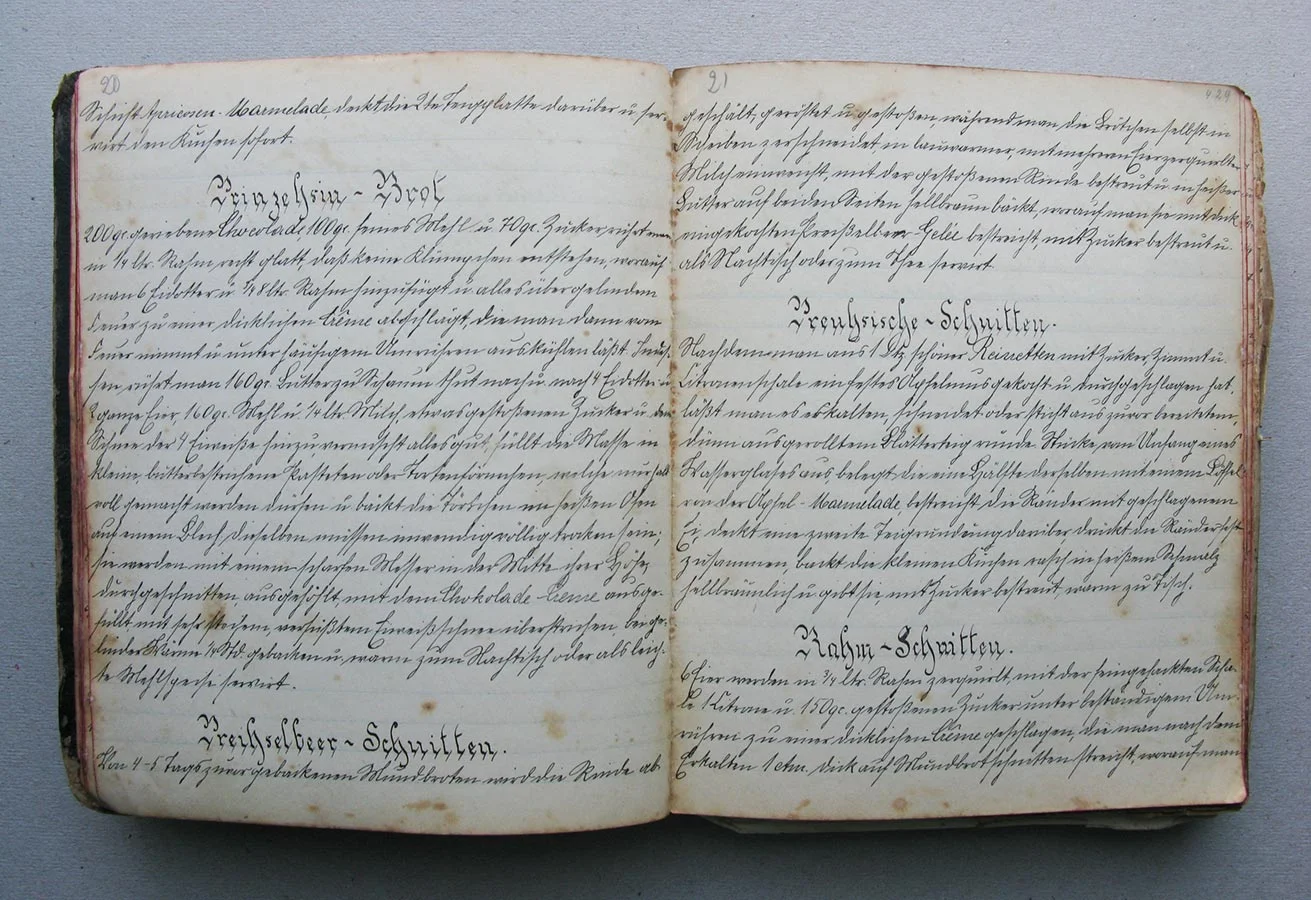 20
Schicht Apricosen-Marmelade, deckt die 2te Teigplatte darüber u. ser-
virt den Kuchen sofort.
Prinzeßin-Brot
200 gr. geriebene Chocolade, 100 gr. feines Mehl u. 70 gr. Zucker rührt man
in 1/4 ltr. Rahm recht glatt, daß keine Klümpchen entstehen, worauf
man 6 Eidotter u. 3/8 ltr. Rahm hinzufügt u. alles über gelindem
Feuer zu einer dicklichen Crême abschlägt, die man dann vom
Feuer nimmt u. unter häufigem Umrühren auskühlen läßt. Indes-
sen rührt man 160 gr. Butter zu Schaum thut nach u. nach 4 Eidotter u.
2 ganze Eier, 160 gr. Mehl u. 1/4 ltr. Milch etwas gestoßenen Zucker u. den
Schnee der 4 Eiweiße hinzu, vermischt alles gut, füllt die Masse in
kleine, butterbestrichene Pasteten oder Tortenförmchen, welche nur halb
voll gemacht werden dürfen u. bäckt die Törtchen im heißen Ofen
auf einem Blech, dieselben müssen inwendig völlig trocken sein;
sie werden mit einem scharfen Messer in der Mitte ihrer Höhe
durchgeschnitten ausgehöhlt, mit dem Chokolade-Creme ausge-
füllt mit sehr steifem, versüßtem Eiweißschnee überstrichen, bei ge-
linder Wärme 1/4 Std. gebacken u. warm zum Nachtisch oder als leich-
te Mehlspeise servirt.
Preißelbeer-Schnitten.
Von 4-5 Tags zuvor gebackenen Mundbroten wird die Rinde ab-
21
429
geschält, geröstet u. gestoßen, während man die Brötchen selbst in
Scheiben zerschneidet in lauwarmer, mit mehreren Eier zerquirlter
Milch einweicht, mit der gestoßenen Rinde bestreut u. in heißer
Butter auf beiden Seiten hellbraun bäckt, worauf man sie mit dick
eingekochten Preißelbeer Gelee bestreicht, mit Zucker bestreut u.
als Nachtisch oder zum Thee servirt.
Preußsische-Schnitten.
Nachdem man aus 1 Dtz. schöner Reinetten mit Zucker, Zimmt u.
Citronenschale ein festes Äpfelmus gekocht u. durchgeschlagen hat,
läßt man es erkalten, schneidet oder sticht aus zuvor bereitetem,
dünn ausgerolltem Blätterteig runde Stücke, vom Umfang eines
Wasserglases aus, belegt die eine Hälfte derselben mit einem Löffel
von der Äpfel-Marmelade, bestreicht die Ränder mit geschlagenem
Ei, deckt eine zweite Teigrundung darüber drückt die Ränder fest
zusammen, backt die kleinen Kuchen rasch in heißem Schmalz
hellbräunlich u. gebt sie, mit Zucker bestreut, warm zu Tisch.
Rahm-Schnitten.
6 Eier werden in 3/4 ltr. Rahm zerquirlt, mit der feingehackten Scha-
le 1 Citrone u. 150 gr. gestoßenen Zucker unter beständigem Um-
rühren zu einer dicklichen Crême geschlagen, die man nach dem
Erkalten 1 ctm. dick auf Mundbrotschnitten streicht, worauf man